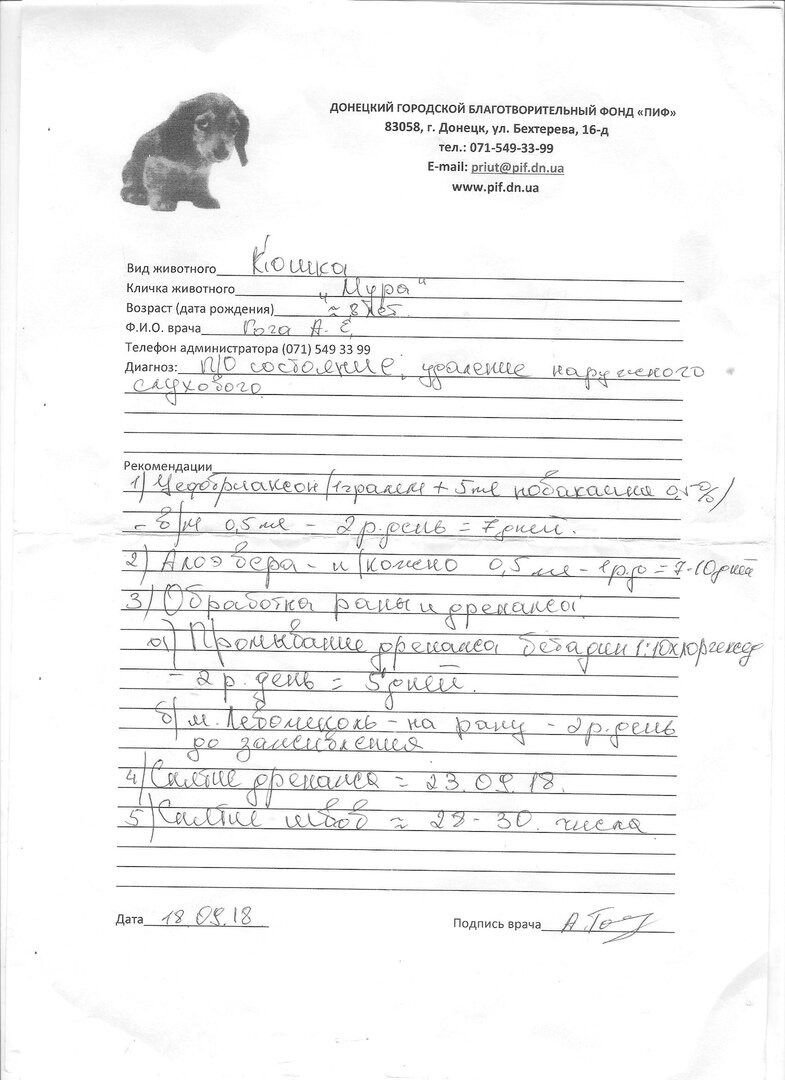 ДОНЕЦКИЙ ГОРОДСКОЙ БЛАГОТВОРИТЕЛЬНЫЙ ФОНД «ПИФ»
83058, г. Донецк, ул. Бехтерева, 16-д
тел.: 071-549-33-99
E-mail: priut@pif.dn.ua
www.pif.dn.ua
Вид животного Кошка
Кличка животного "Мура"
Возраст (дата рождения) ≈ 8 лет.
Ф.И.О. врача Гога А. Е.
Телефон администратора (071) 549 33 99
Диагноз: П/О состояние, удаление наружного
слухового
Рекомендации
1) Цефтриаксон (1грамм + 5мл новокаина 0,5%)
- в/м 0,5мл - 2 р. день = 7 дней.
2) Алоэ вера - п/кожно 0,5 мл - 1р/д = 7-10 дней
3) Обработка раны и дренажа:
а) Промывание дренажа бетадин 1:10 хлоргексид
- 2 р. день = 5 дней.
б) м. Левомеколь - на рану - 2р. день
до заживления
4) Снятие дренажа = 23.09.18.
5) Снятие швов ≈ 28-30. числа
Дата 18.09.18
Подпись врача